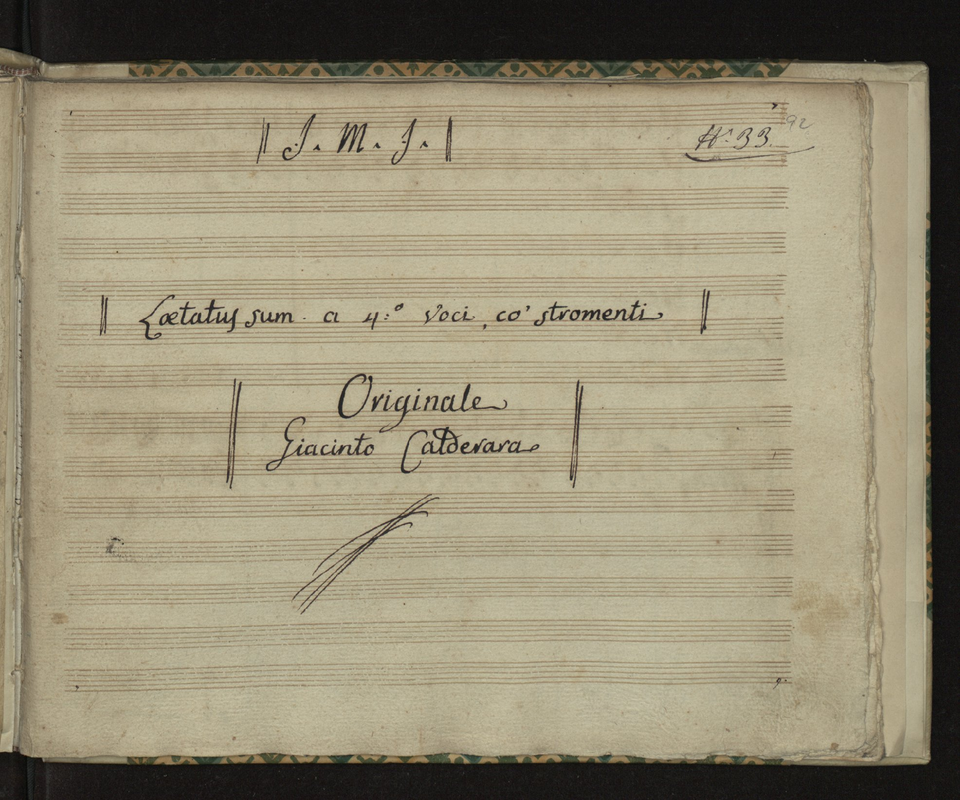 J. M. J.
N.º 33.
92
Lætatus sum a 4:º Voci, co' stromenti
Originale
Giacinto Calderara